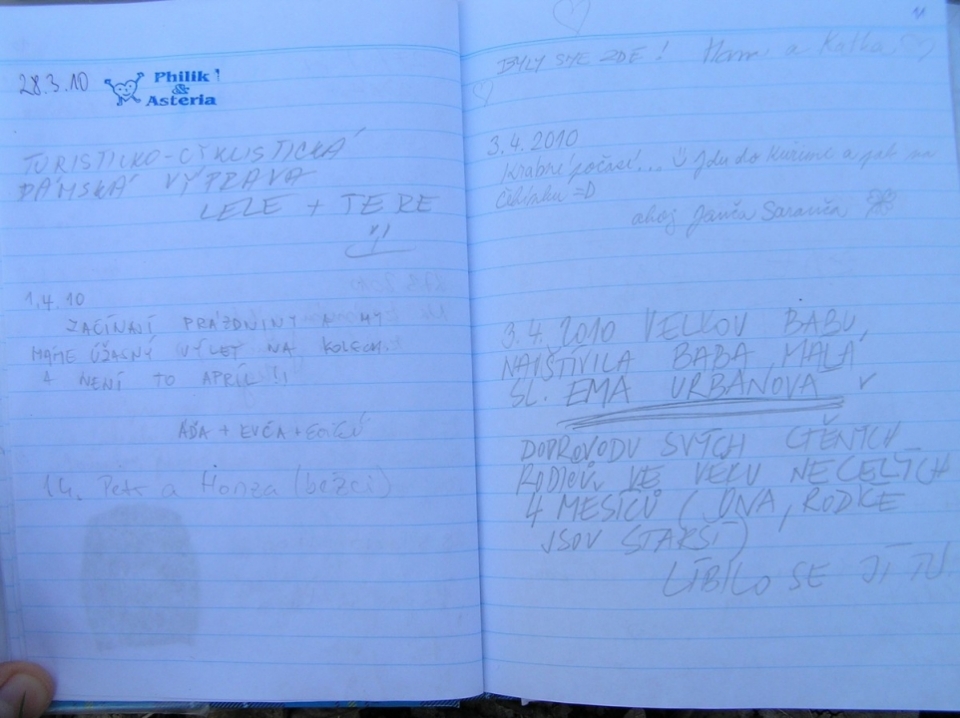 28.3.10
Philik!
&
Asteria
TURISTICKO-CYKLISTICKÁ
DÁMSKÁ VÝPRAVA
LELE + TERE
1.4.10
ZAČÍNAJÍ PRÁZDNINY A MY
MÁME ÚŽASNÝ VÝLET NA KOLECH.
A NENÍ TO APRÍL!!
ÁĎA + EVČA +
14. Petr a Honza (běžci)
11
BYLY SME ZDE! a Katka
3.4.2010
Krásné počasí... Jdu do Kuřimi a pak na
=D
ahoj Janča Saranča
3.4.2010 VELKOU BABU
NAVŠTÍVILA BABA MALÁ
SL. EMA URBANOVÁ V
DOPROVODU SVÝCH CTĚNÝCH
RODIČŮ VE VĚKU NECELÝCH
4 MĚSÍCŮ (ONA, RODIČE
JSOU STARŠÍ)
LÍBILO SE JÍ TU